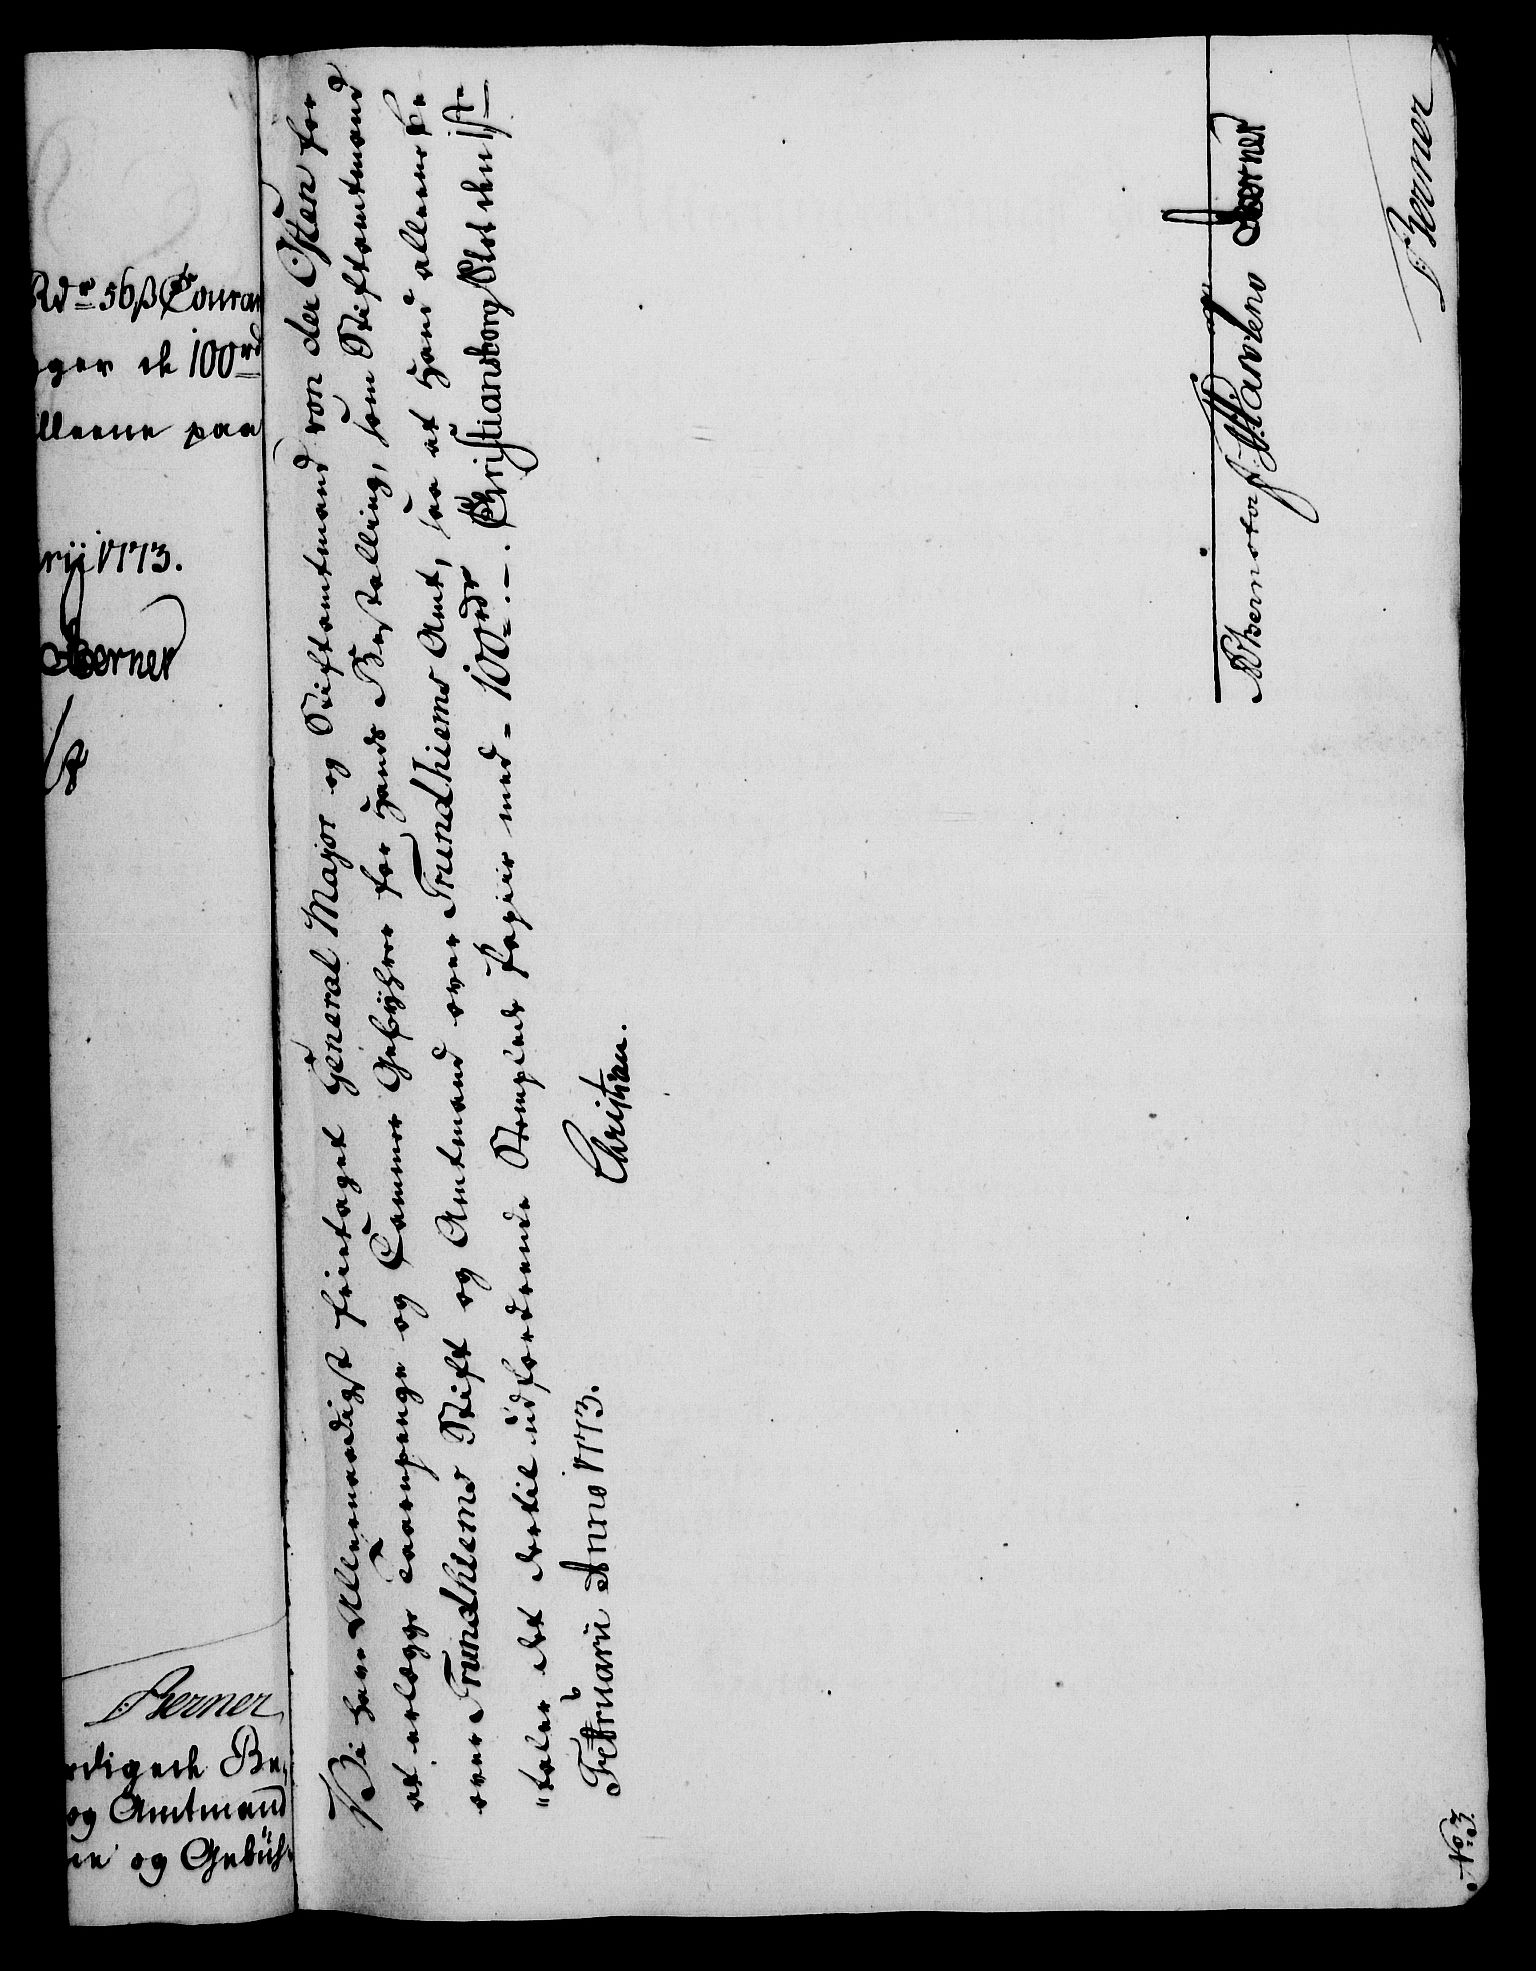 Rdr 56 ß Couran
ger de 100 rd
lleene paa
rij 1773.
Berner
Berner
rdigede Be-
og Amtmand
og Gebüh-
Vi have Allernaadigst fritaget General Major og Stiftamtmand von der Osten for
at erlægge Taarnpenge og Cammer Gebyhrer for Hands Bestalling, som Stiftamtmand
over Trundhiems Stift og Amtmand over Trundhiems Amt, saa at Hand alleene be
"taler det dertil udfordrende Stemplede Papier med = 100 rdr = . – . Christiansborg Slot den 1ste
Februarii Anno 1773.
Christian.
Bernstorf. Hanvleno Berner
Berner
No 3.